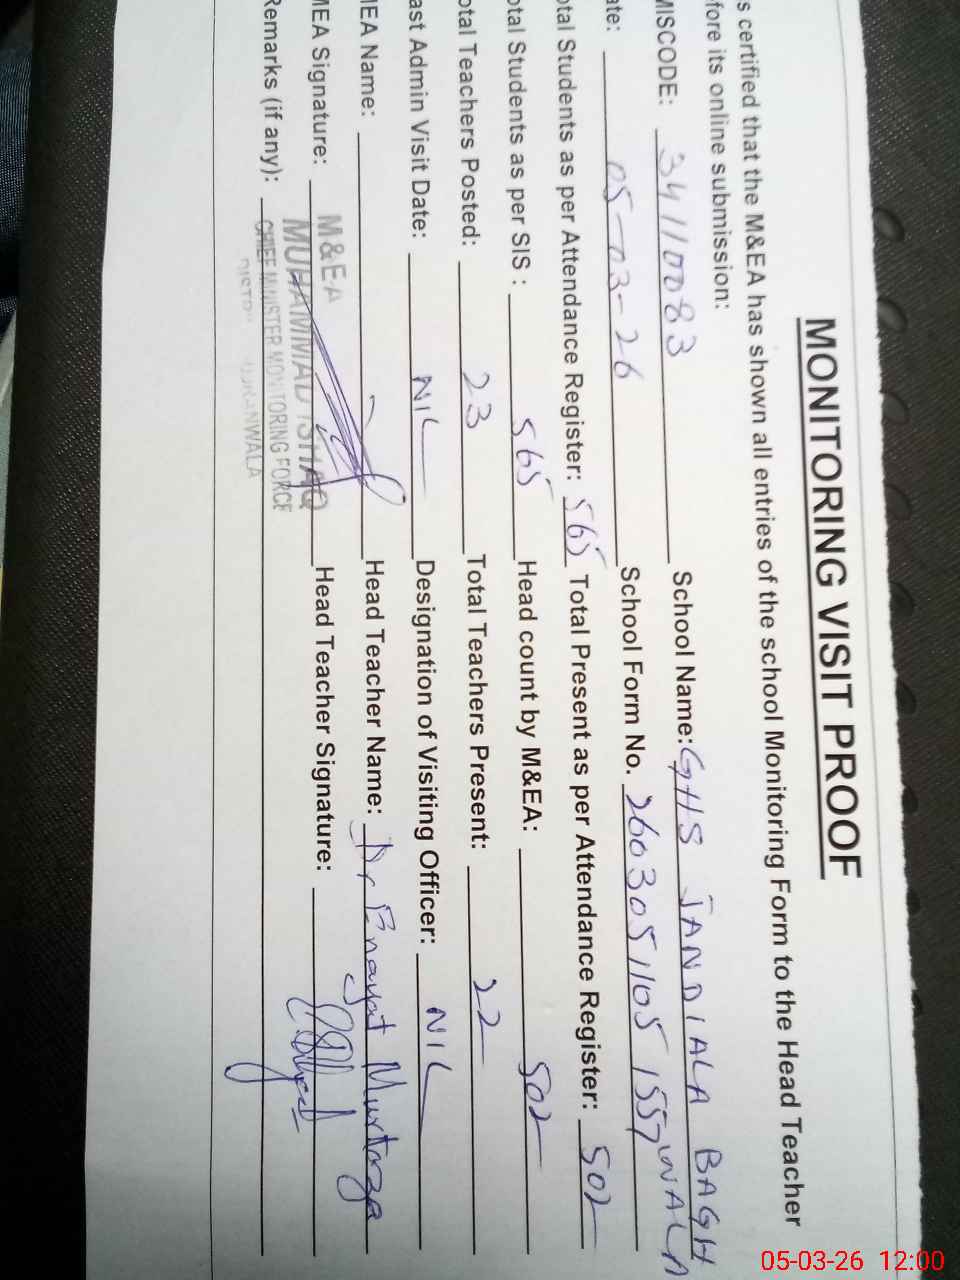 MONITORING VISIT PROOF
s certified that the M&EA has shown all entries of the school Monitoring Form to the Head Teacher
fore its online submission:
MISCODE: 34110083 School Name: GHS JANDIALA BAGH WALA
ate: 05-03-26 School Form No. 2603051105 1557
otal Students as per Attendance Register: 565 Total Present as per Attendance Register: 502
otal Students as per SIS : 565 Head count by M&EA: 502
otal Teachers Posted: 23 Total Teachers Present: 22
ast Admin Visit Date: NIL Designation of Visiting Officer: NIL
IEA Name: Head Teacher Name: Dr Enayat Murtaza
MEA Signature: Head Teacher Signature:
Remarks (if any):
M&EA
MUHAMMAD ISHAQ
CHIEF MINISTER MONITORING FORCE
05-03-26 12:00